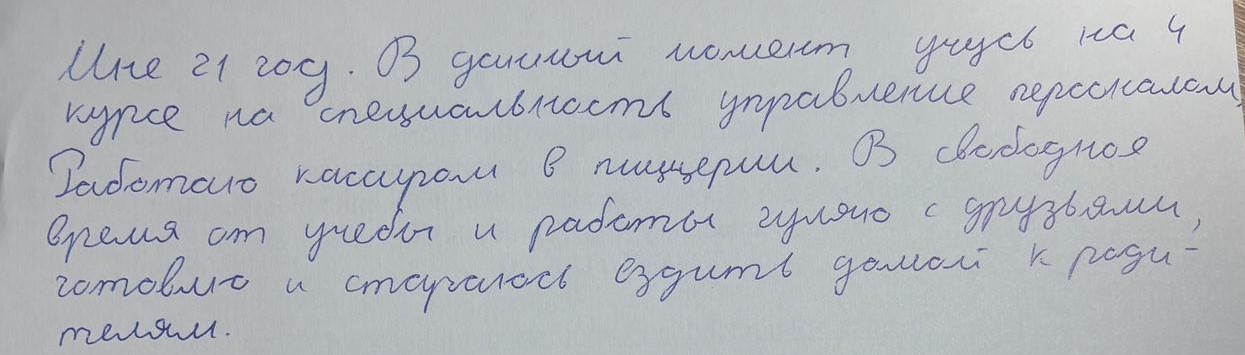 Мне 21 год. В данный момент учусь на 4
курсе на специальность управление персоналом.
Работаю кассиром в пиццерии. В свободная
время от учебы и работы гуляю с друзьями,
готовлю и стараюсь ездить домой к роди-
телям.